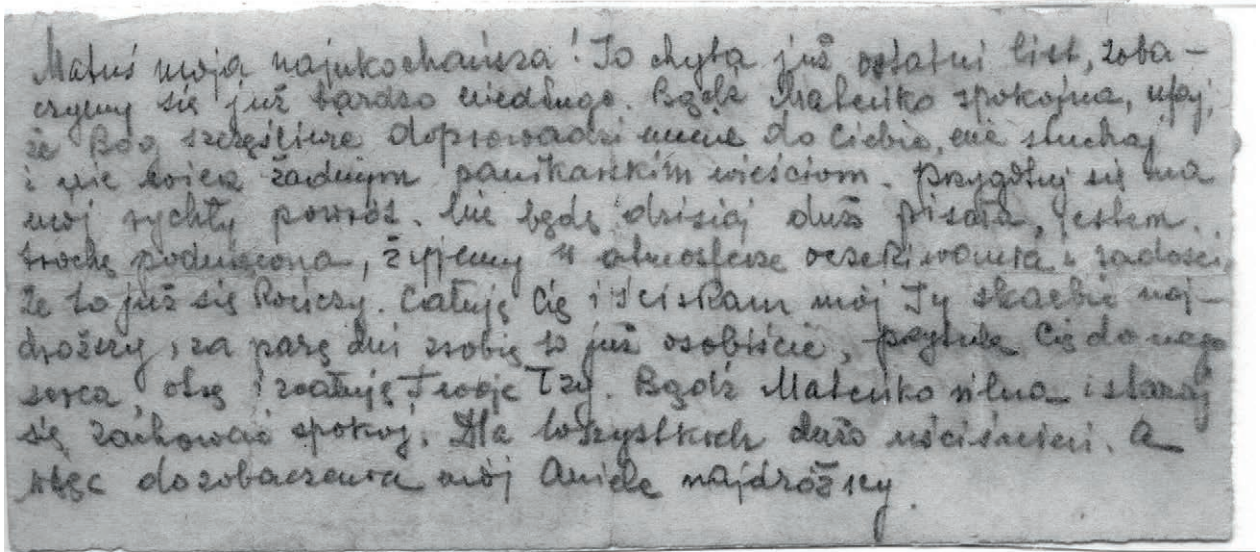 Matuś moja najukochańsza! To chyba już ostatni list, zoba-
czymy się już bardzo niedługo. Bądź Mateńko spokojna, ufaj,
że Bóg szczęśliwie doprowadzi mnie do Ciebie, nie słuchaj
i nie wierz żadnym panikarskim wieściom. Przygotuj się na
mój rychły powrót. Nie będę dzisiaj dużo pisała, jestem
trochę podniecona, żyjemy w atmosferze oczekiwania i radości,
że to już się kończy. Całuję Cię i ściskam mój Ty skarbie naj-
droższy, za parę dni zrobię to już osobiście, przytulę Cię do mego
serca, otrę i scałuję Twoje łzy. Bądź Mateńko silna i staraj
się zachować spokój. Dla wszystkich dużo uściśnień. A
więc do zobaczenia mój Aniele najdroższy.